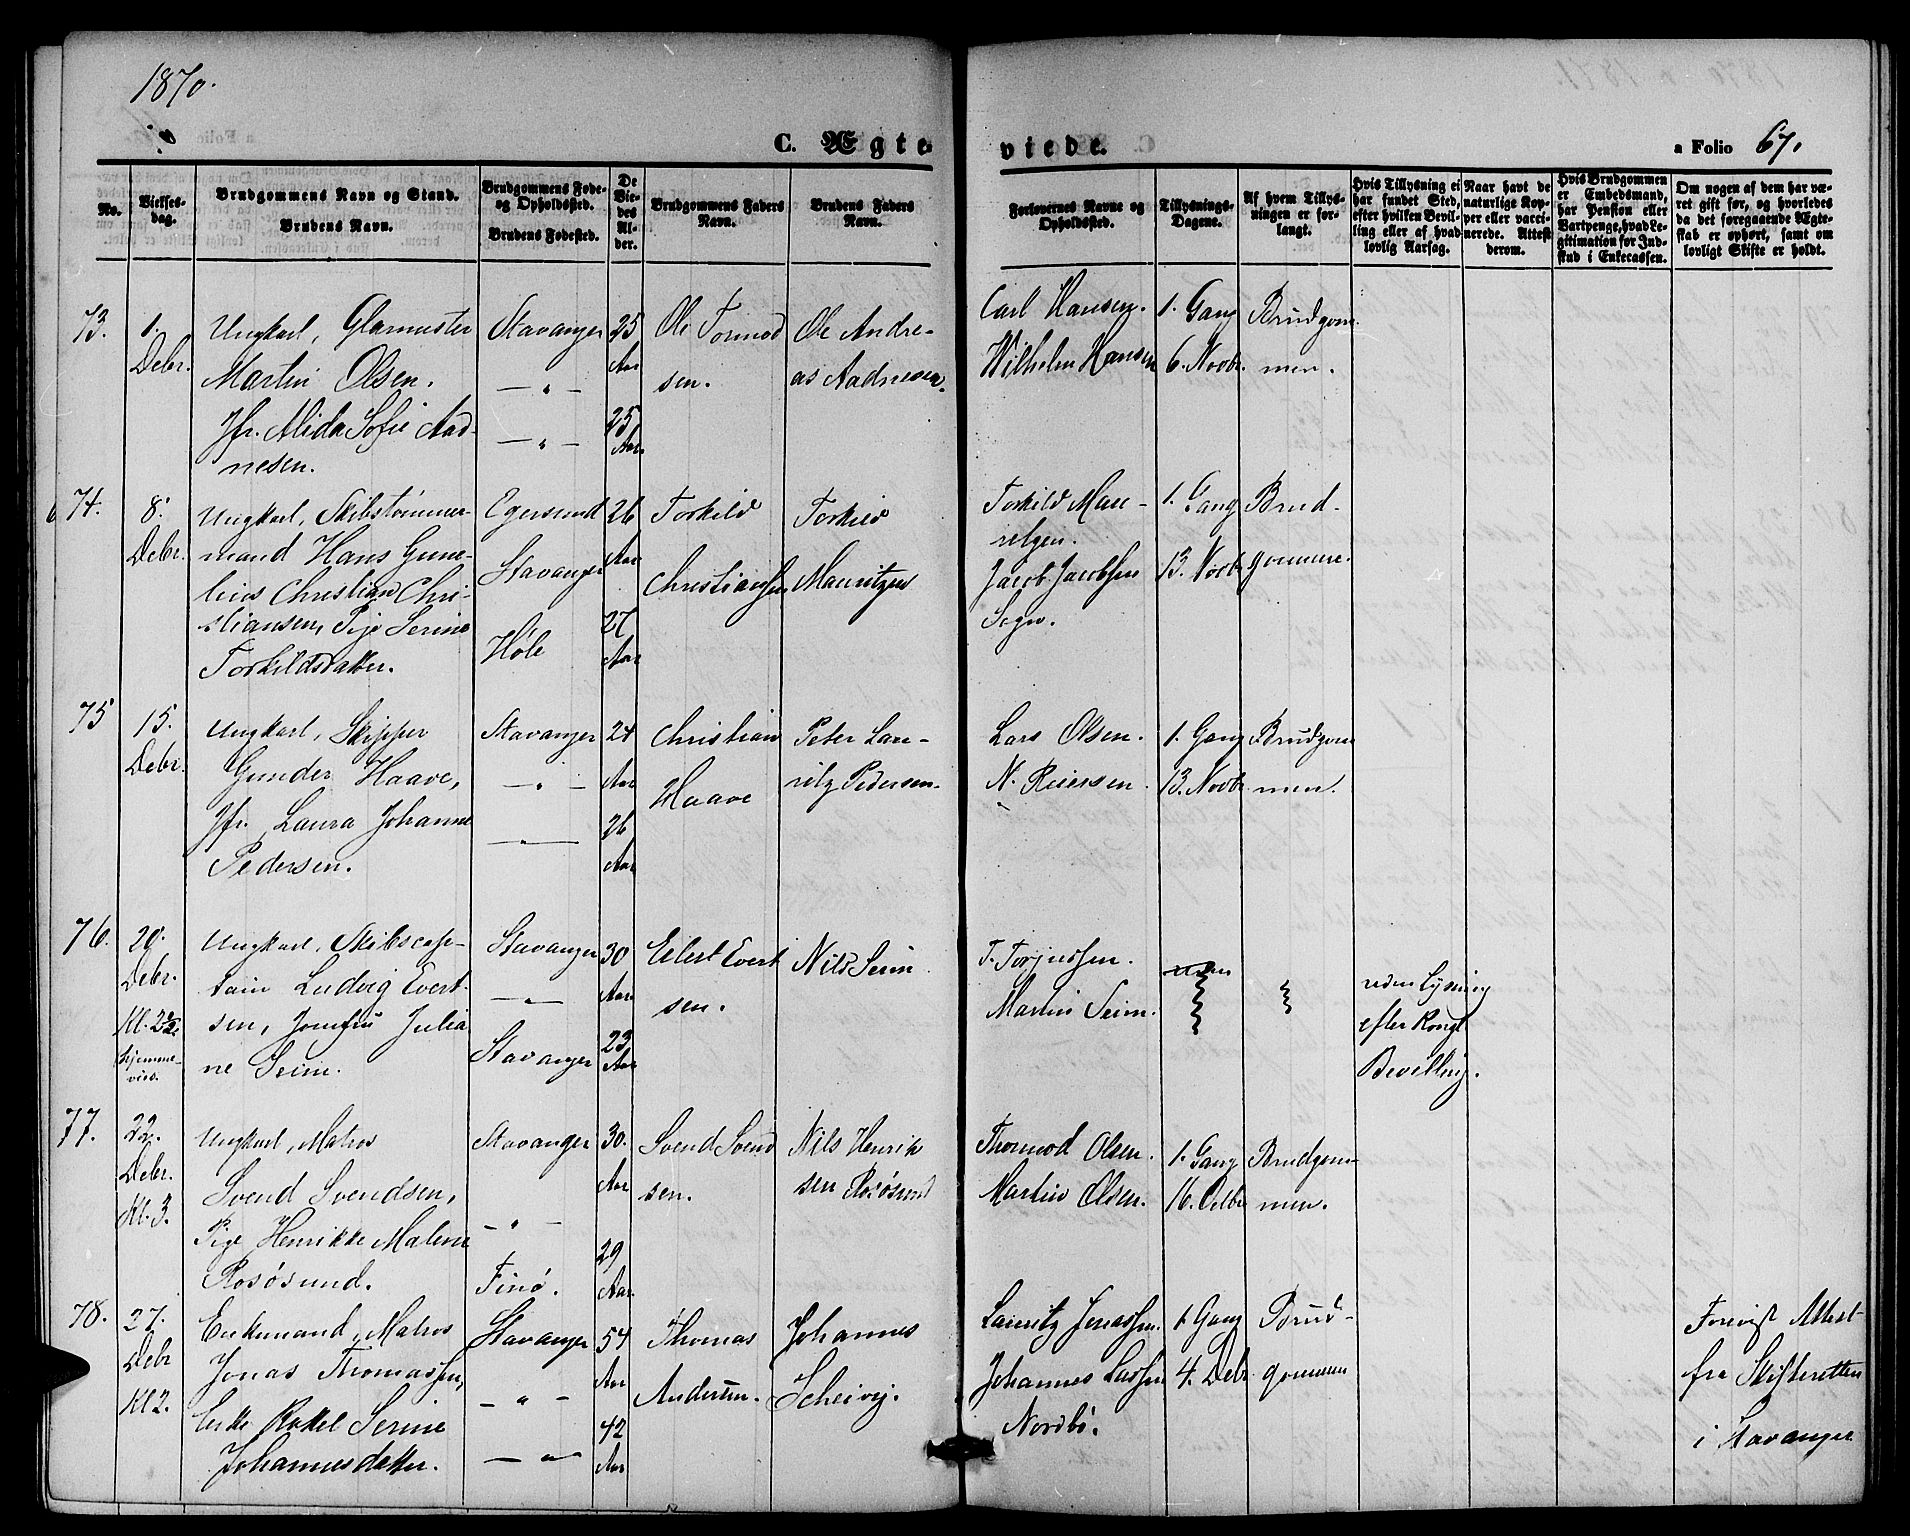 1870.
C. Ægte
viede.
a Folio 67.
No.
Vielses-
dag.
Brudgommens Navn og Stand.
Brudens Navn.
Brudgommens Føde-
og Opholdssted.
Brudens Fødested.
De
Vie-
des
Al-
der.
Brudgommens Faders
Navn.
Brudens Faders
Navn.
Forlovernes Navne og
Opholdssted.
Tillysnings-
Dagene.
Af hvem Tillys-
ningen er for-
langt.
Hvis Tillysning ei
har fundet Sted,
efter hvilken Bevil-
ling eller af hvad
lovlig Aarsag.
Naar havt de
naturlige Kop-
per eller vacci-
nerede. Attest
derom.
Hvis Brudgommen
er Embedsmand,
har Pension eller
Vartpenge, hvad Le-
gitimation for Ind-
skud i Enkecassen.
Om nogen af dem har væ-
ret gift før, og hvorledes
da det foregaaende Ægte-
skab er ophørt, samt om
lovligt Skifte er holdt.
73.
1.
Debr.
Ungkarl, Glarmester
Martin Olsen.
Jfr. Alida Sofie Aad-
nesen.
Stavanger
— „ —
— „ —
25
Aar
25
Aar.
Ole Tormod
sen.
Ole Andre-
as Aadnesen.
Carl Hansen.
Wilhelm Hansen
1. Gang
6. Novbr.
Brudgom
men.
74.
8.
Debr.
Ungkarl, Skibstømmer-
mand Hans Gune-
lius Christian Chri-
stiansen, Pige Serine
Torkildsdatter.
Egersund
Stavanger
Høle
26
Aar
27
Aar
Torkild
Christiansen
Torkild
Mauritzen
Torkild Mau-
ritzen.
Jacob Jacobsen
Sogn.
1. Gang
13. Novbr
Brud-
gommene.
75
15.
Debr.
Ungkarl, Skipper
Gunder Haave,
Jfr. Laura Johanne
Pedersen.
Stavanger
— „ —
— „ —
24
Aar
26
Aar
Christian
Haave
Peter Lau-
ritz Pedersen.
Lars Olsen.
N. Reiersen
1. Gang
13. Novbr.
Brudgom
men.
76.
20.
Debr.
Kl. 2½
hjemme-
vied.
Ungkarl, Skibscap-
tain Ludvig Evert-
sen, Jomfru Julia
ne Seim.
Stavanger
— „ —
Stavanger
30
Aar
23
Aar
Eilert Evert
sen.
Nils Seim
T. Torjussen.
Martin Seim.
uden Lysning
efter Kongl
Bevilling.
77.
22.
Debr.
Kl. 3.
Ungkarl, Matros
Svend Svendsen,
Pige Henrikke Malene
Rosøsund.
Stavanger
— „ —
Finø.
30.
Aar
29
Aar
Svend Svend
sen.
Nils Henrik
sen Rosøsund
Thormod Olsen.
Martin Olsen.
1. Gang
16. Octbr
Brudgom-
men.
78.
27.
Debr
Kl 2.
Enkemand, Matros
Jonas Thomassen,
Enke Rakel Serine
Johannesdatter.
Stavanger
— „ —
— „ —
54
Aar
42
Aar
Thomas
Andersen.
Johannes
Scheivig.
Lauritz Jonassen.
Johannes Lassen
Nordbø.
1. Gang
4. Debr
Brud-
gommen
Forevist Attest
fra Skifteretten
i Stavanger